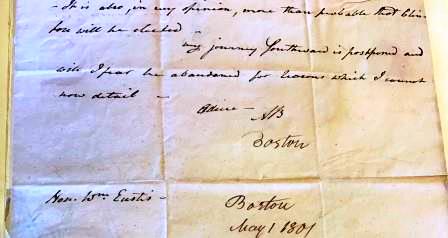 - It is also, in my opinion, more than probable that Clin-
ton will be elected -
my journey Southward is postponed and
will I fear be abandoned for reasons which I cannot
now detail -
Adieu -
AB
Boston
Hon. Wm Eustis -
Boston
May 1 1801